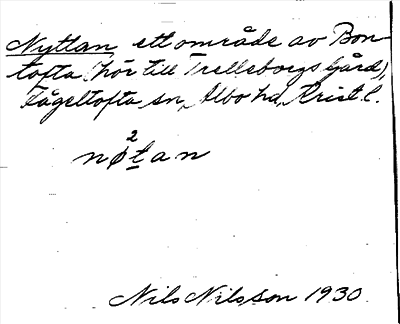 Nyttan, ett område av Bon-
tofta (hör till Trelleborgs Gård),
Fågeltofta sn, Albo hd, Krist. l.
2
nøtan
Nils Nilsson 1930.